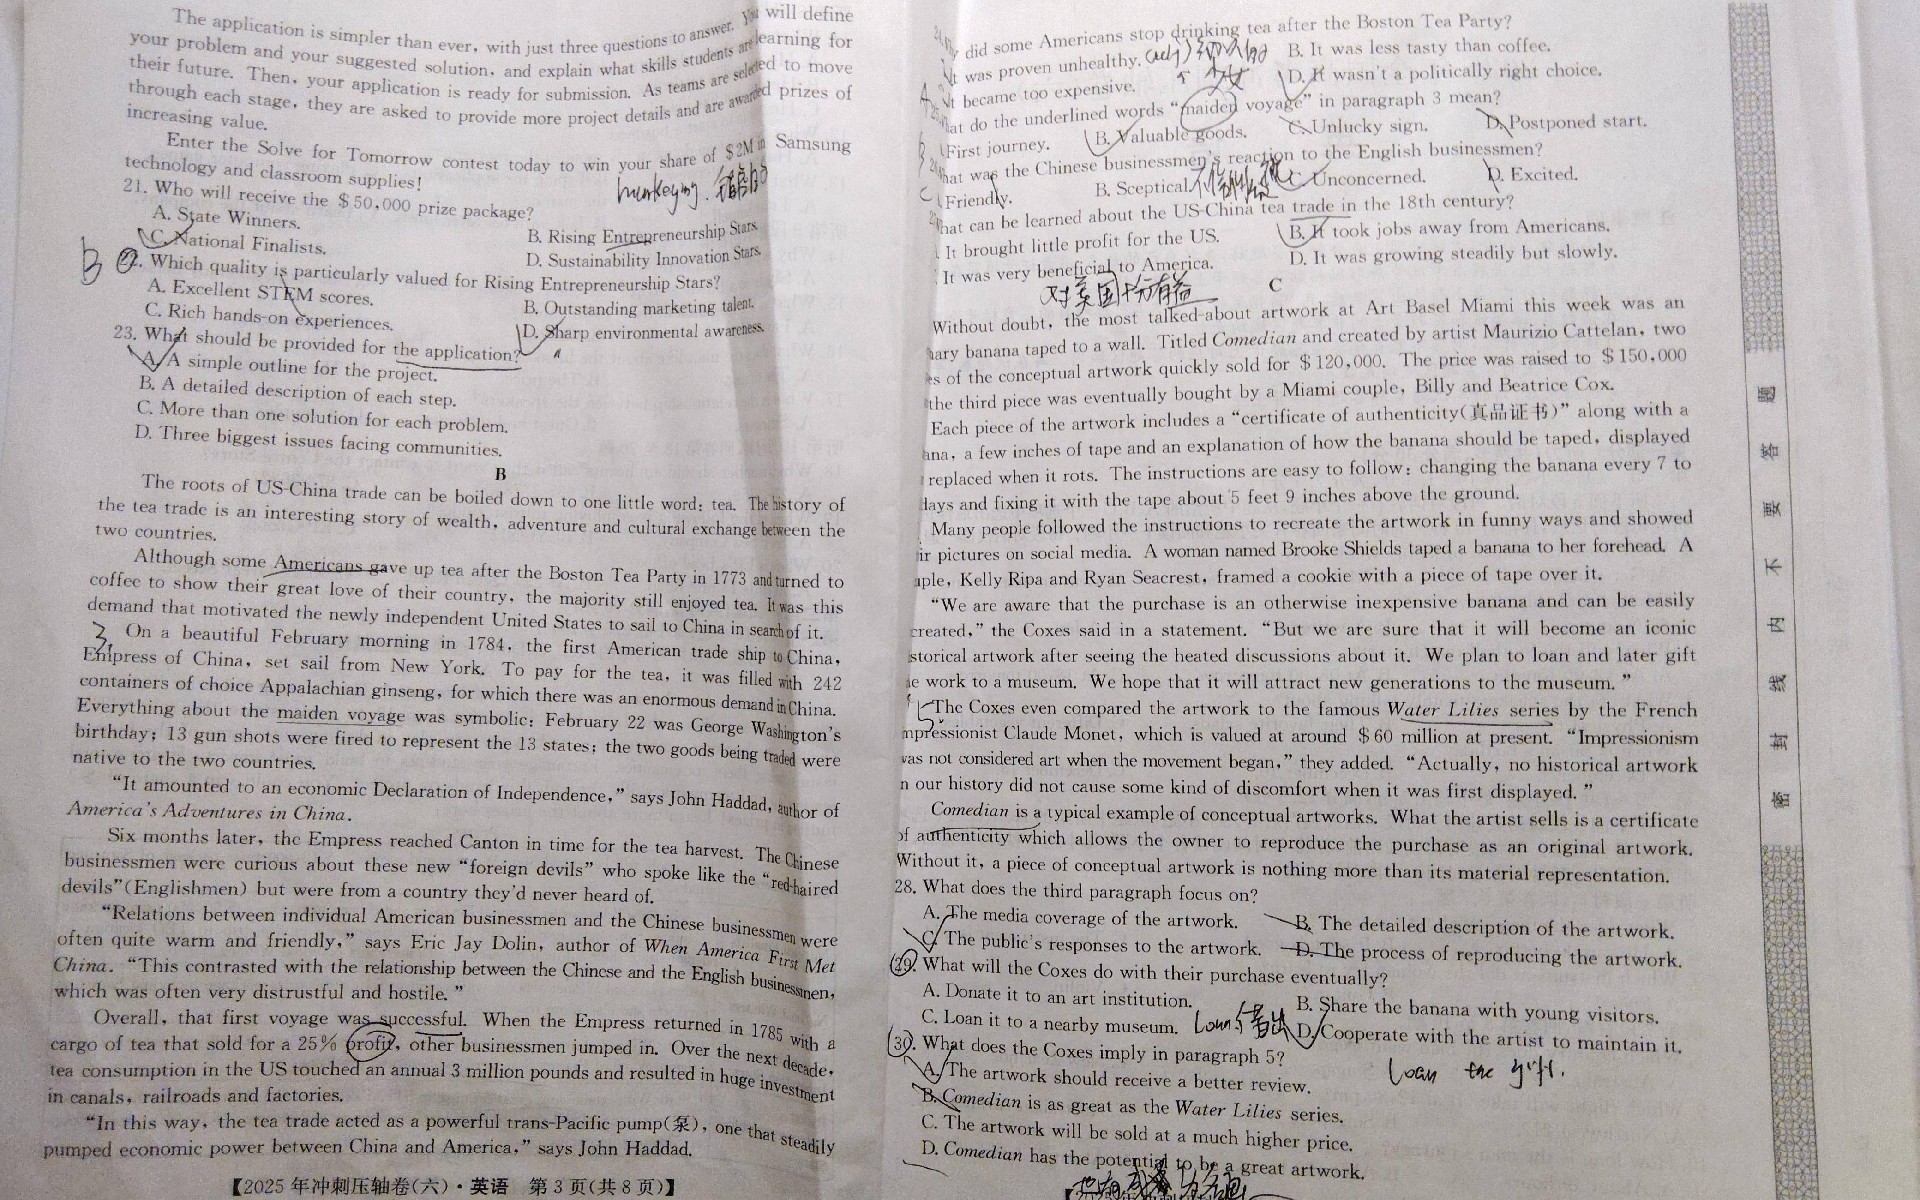 The application is simpler than ever, with just three questions to answer. You will define
your problem and your suggested solution, and explain what skills students are learning for
their future. Then, your application is ready for submission. As teams are selected to move
through each stage, they are asked to provide more project details and are awarded prizes of
increasing value.
Enter the Solve for Tomorrow contest today to win your share of $2M in Samsung
technology and classroom supplies!
21. Who will receive the $50,000 prize package?
A. State Winners.
B. Rising Entrepreneurship Stars.
C. National Finalists.
D. Sustainability Innovation Stars.
B
22. Which quality is particularly valued for Rising Entrepreneurship Stars?
A. Excellent STEM scores.
B. Outstanding marketing talent.
C. Rich hands-on experiences.
D. Sharp environmental awareness.
23. What should be provided for the application?
A. A simple outline for the project.
B. A detailed description of each step.
C. More than one solution for each problem.
D. Three biggest issues facing communities.
B
The roots of US-China trade can be boiled down to one little word: tea. The history of
the tea trade is an interesting story of wealth, adventure and cultural exchange between the
two countries.
Although some Americans gave up tea after the Boston Tea Party in 1773 and turned to
coffee to show their great love of their country, the majority still enjoyed tea. It was this
demand that motivated the newly independent United States to sail to China in search of it.
3
On a beautiful February morning in 1784, the first American trade ship to China,
Empress of China, set sail from New York. To pay for the tea, it was filled with 242
containers of choice Appalachian ginseng, for which there was an enormous demand in China.
Everything about the maiden voyage was symbolic: February 22 was George Washington's
birthday; 13 gun shots were fired to represent the 13 states; the two goods being traded were
native to the two countries.
"It amounted to an economic Declaration of Independence," says John Haddad, author of
America's Adventures in China.
Six months later, the Empress reached Canton in time for the tea harvest. The Chinese
businessmen were curious about these new "foreign devils" who spoke like the "red-haired
devils"(Englishmen) but were from a country they'd never heard of.
"Relations between individual American businessmen and the Chinese businessmen were
often quite warm and friendly," says Eric Jay Dolin, author of When America First Met
China. "This contrasted with the relationship between the Chinese and the English businessmen,
which was often very distrustful and hostile."
Overall, that first voyage was successful. When the Empress returned in 1785 with a
cargo of tea that sold for a 25% profit, other businessmen jumped in. Over the next decade,
tea consumption in the US touched an annual 3 million pounds and resulted in huge investment
in canals, railroads and factories.
"In this way, the tea trade acted as a powerful trans-Pacific pump(泵), one that steadily
pumped economic power between China and America," says John Haddad.
【2025年冲刺压轴卷(六)·英语 第3页(共8页)】
did some Americans stop drinking tea after the Boston Tea Party?
It was proven unhealthy.
B. It was less tasty than coffee.
It became too expensive.
D. It wasn't a politically right choice.
What do the underlined words "maiden voyage" in paragraph 3 mean?
First journey.
B. Valuable goods.
C. Unlucky sign.
D. Postponed start.
What was the Chinese businessmen's reaction to the English businessmen?
Friendly.
B. Sceptical.
C. Unconcerned.
D. Excited.
What can be learned about the US-China tea trade in the 18th century?
It brought little profit for the US.
B. It took jobs away from Americans.
It was very beneficial to America.
D. It was growing steadily but slowly.
对美国十分有益
C
Without doubt, the most talked-about artwork at Art Basel Miami this week was an
banana taped to a wall. Titled Comedian and created by artist Maurizio Cattelan, two
of the conceptual artwork quickly sold for $120,000. The price was raised to $150,000
the third piece was eventually bought by a Miami couple, Billy and Beatrice Cox.
Each piece of the artwork includes a "certificate of authenticity(真品证书)" along with a
a few inches of tape and an explanation of how the banana should be taped, displayed
replaced when it rots. The instructions are easy to follow: changing the banana every 7 to
days and fixing it with the tape about 5 feet 9 inches above the ground.
Many people followed the instructions to recreate the artwork in funny ways and showed
pictures on social media. A woman named Brooke Shields taped a banana to her forehead. A
Kelly Ripa and Ryan Seacrest, framed a cookie with a piece of tape over it.
"We are aware that the purchase is an otherwise inexpensive banana and can be easily
created," the Coxes said in a statement. "But we are sure that it will become an iconic
historical artwork after seeing the heated discussions about it. We plan to loan and later gift
the work to a museum. We hope that it will attract new generations to the museum."
The Coxes even compared the artwork to the famous Water Lilies series by the French
Impressionist Claude Monet, which is valued at around $60 million at present. "Impressionism
was not considered art when the movement began," they added. "Actually, no historical artwork
in our history did not cause some kind of discomfort when it was first displayed."
Comedian is a typical example of conceptual artworks. What the artist sells is a certificate
of authenticity which allows the owner to reproduce the purchase as an original artwork.
Without it, a piece of conceptual artwork is nothing more than its material representation.
28. What does the third paragraph focus on?
A. The media coverage of the artwork.
B. The detailed description of the artwork.
C. The public's responses to the artwork.
D. The process of reproducing the artwork.
29. What will the Coxes do with their purchase eventually?
A. Donate it to an art institution.
B. Share the banana with young visitors.
C. Loan it to a nearby museum.
D. Cooperate with the artist to maintain it.
30. What does the Coxes imply in paragraph 5?
loan the gift.
A. The artwork should receive a better review.
B. Comedian is as great as the Water Lilies series.
C. The artwork will be sold at a much higher price.
D. Comedian has the potential to be a great artwork.
密 封 线 内 不 要 答 题